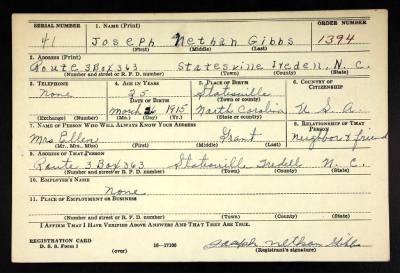 SERIAL NUMBER 1. NAME (Print) ORDER NUMBER
41 Joseph Nethan Gibbs 1394
(First) (Middle) (Last)
2. ADDRESS (Print)
Route 3 Box 363 Statesville Iredell, N.C.
(Number and street or R. F. D. number) (Town) (County) (State)
3. TELEPHONE 4. AGE IN YEARS 5. PLACE OF BIRTH 6. COUNTRY OF CITIZENSHIP
None 25 Statesville
DATE OF BIRTH (Town or county)
March 1915 North Carolina U. S. A.
(Exchange) (Number) (Mo.) (Day) (Yr.) (State or country)
7. NAME OF PERSON WHO WILL ALWAYS KNOW YOUR ADDRESS 8. RELATIONSHIP OF THAT PERSON
Mrs Ellen Grant Neighbor & friend
(Mr., Mrs., Miss) (First) (Middle) (Last)
9. ADDRESS OF THAT PERSON
Route 3 Box 363 Statesville Iredell N. C.
(Number and street or R. F. D. number) (Town) (County) (State)
10. EMPLOYER'S NAME
None
11. PLACE OF EMPLOYMENT OR BUSINESS
(Number and street or R. F. D. number) (Town) (County) (State)
I AFFIRM THAT I HAVE VERIFIED ABOVE ANSWERS AND THAT THEY ARE TRUE.
REGISTRATION CARD
D. S. S. Form 1 (over) 16—17105 Joseph Nethan Gibbs
(Registrant's signature)